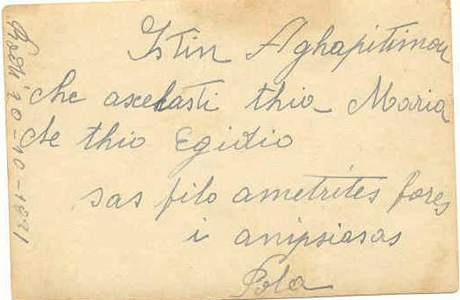 Istin Aghapitimou
che axechasti thia Maria
che thio Egidio
sas filo ametrites fores
i anipsiasas
Pola
20-10-1931